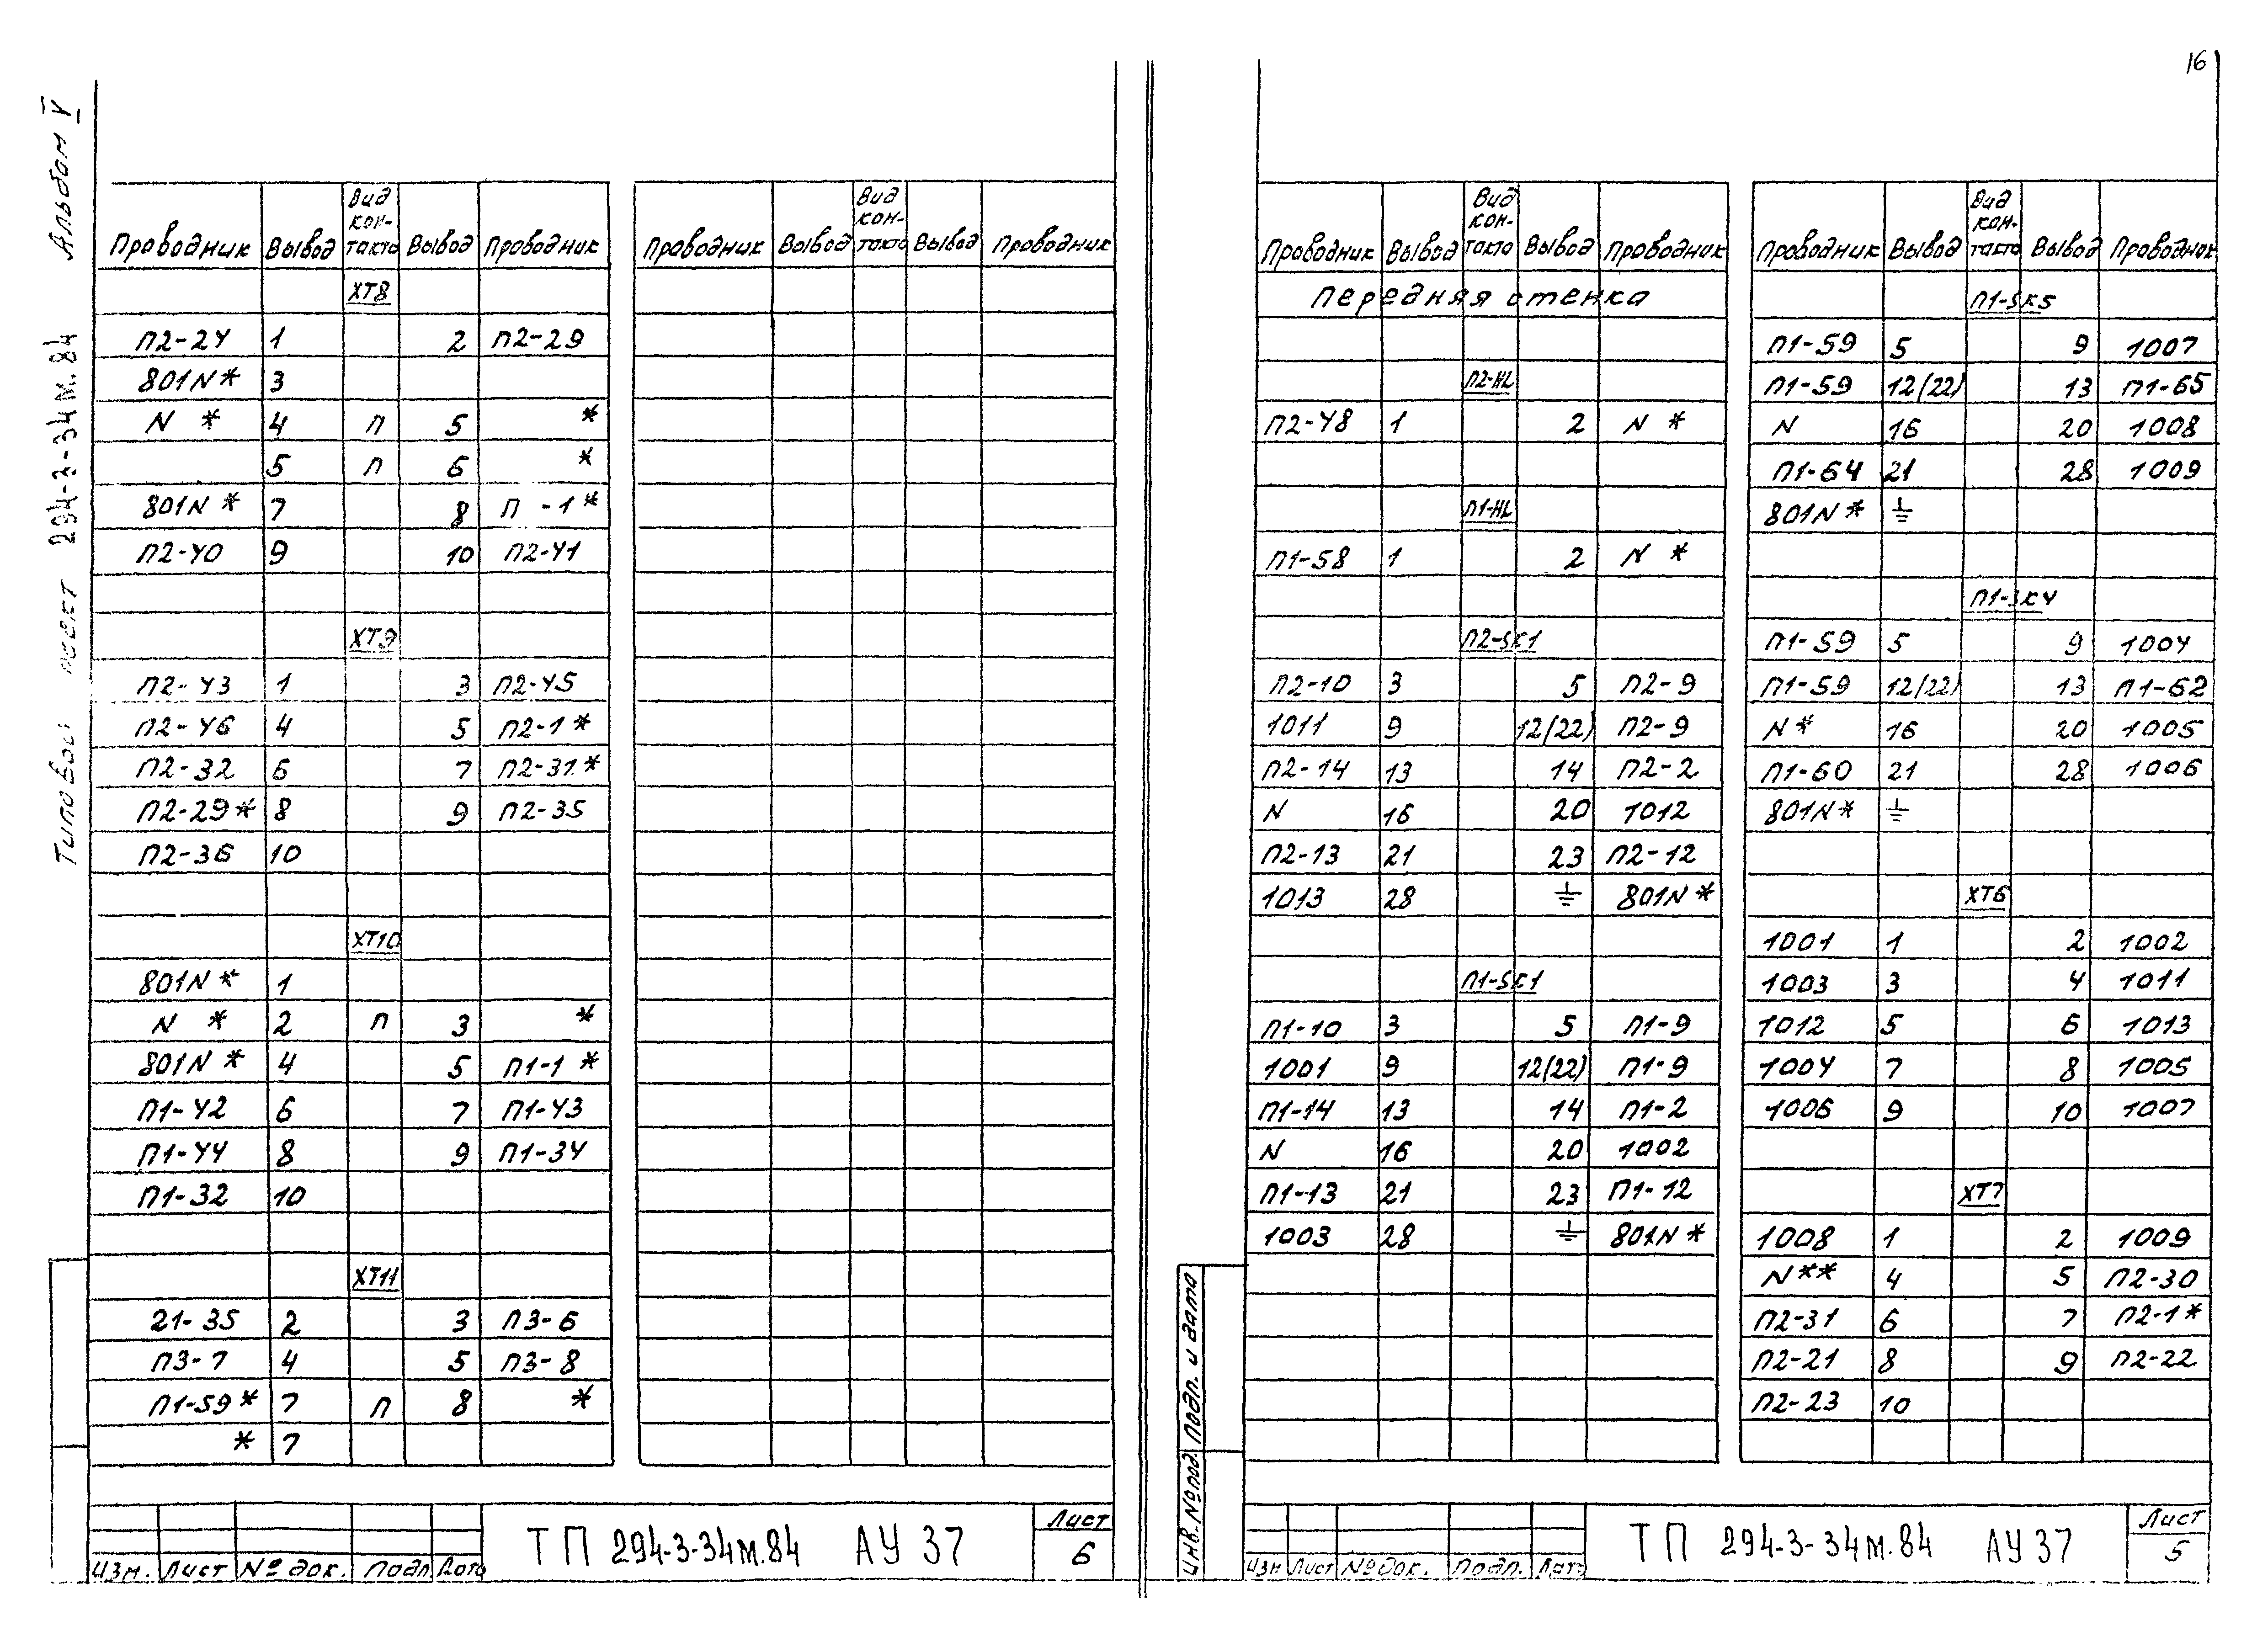 16
Альбом V
Типовой проект 294-3-34м.84
Проводник Вывод Вид кон-такта Вывод Проводник
ХТ8
П2-24 1 2 П2-29
801N* 3
N * 4 п 5 *
5 п 6 *
801N* 7 8 П -1*
П2-40 9 10 П2-41
ХТ9
П2-43 1 3 П2-45
П2-46 4 5 П2-1*
П2-32 6 7 П2-31*
П2-29* 8 9 П2-35
П2-36 10
ХТ10
801N* 1
N * 2 п 3 *
801N* 4 5 П1-1 *
П1-42 6 7 П1-43
П1-44 8 9 П1-34
П1-32 10
ХТ11
21-35 2 3 П3-6
П3-7 4 5 П3-8
П1-59* 7 п 8 *
* 7
Проводник Вывод Вид кон-такта Вывод Проводник
Изм. Лист № док. Подп. Дата
ТП 294-3-34м.84 АУ 37
Лист
6
Проводник Вывод Вид кон-такта Вывод Проводник
Передняя стенка
П2-HL
П2-48 1 2 N *
П1-HL
П1-58 1 2 N *
П2-SK1
П2-10 3 5 П2-9
1011 9 12/22) П2-9
П2-14 13 14 П2-2
N 16 20 1012
П2-13 21 23 П2-12
1013 28 ⏚ 801N*
П1-SK1
П1-10 3 5 П1-9
1001 9 12(22) П1-9
П1-14 13 14 П1-2
N 16 20 1002
П1-13 21 23 П1-12
1003 28 ⏚ 801N*
Проводник Вывод Вид кон-такта Вывод Проводник
П1-SK5
П1-59 5 9 1007
П1-59 12/22) 13 П1-65
N 16 20 1008
П1-64 21 28 1009
801N* ⏚
П1-SK4
П1-59 5 9 1004
П1-59 12/22) 13 П1-62
N* 16 20 1005
П1-60 21 28 1006
801N* ⏚
ХТ6
1001 1 2 1002
1003 3 4 1011
1012 5 6 1013
1004 7 8 1005
1006 9 10 1007
ХТ7
1008 1 2 1009
N** 4 5 П2-30
П2-31 6 7 П2-1*
П2-21 8 9 П2-22
П2-23 10
Инв. № под. Подп. и дата
Изм Лист № док. Подп. Дата
ТП 294-3-34м.84 АУ 37
Лист
5